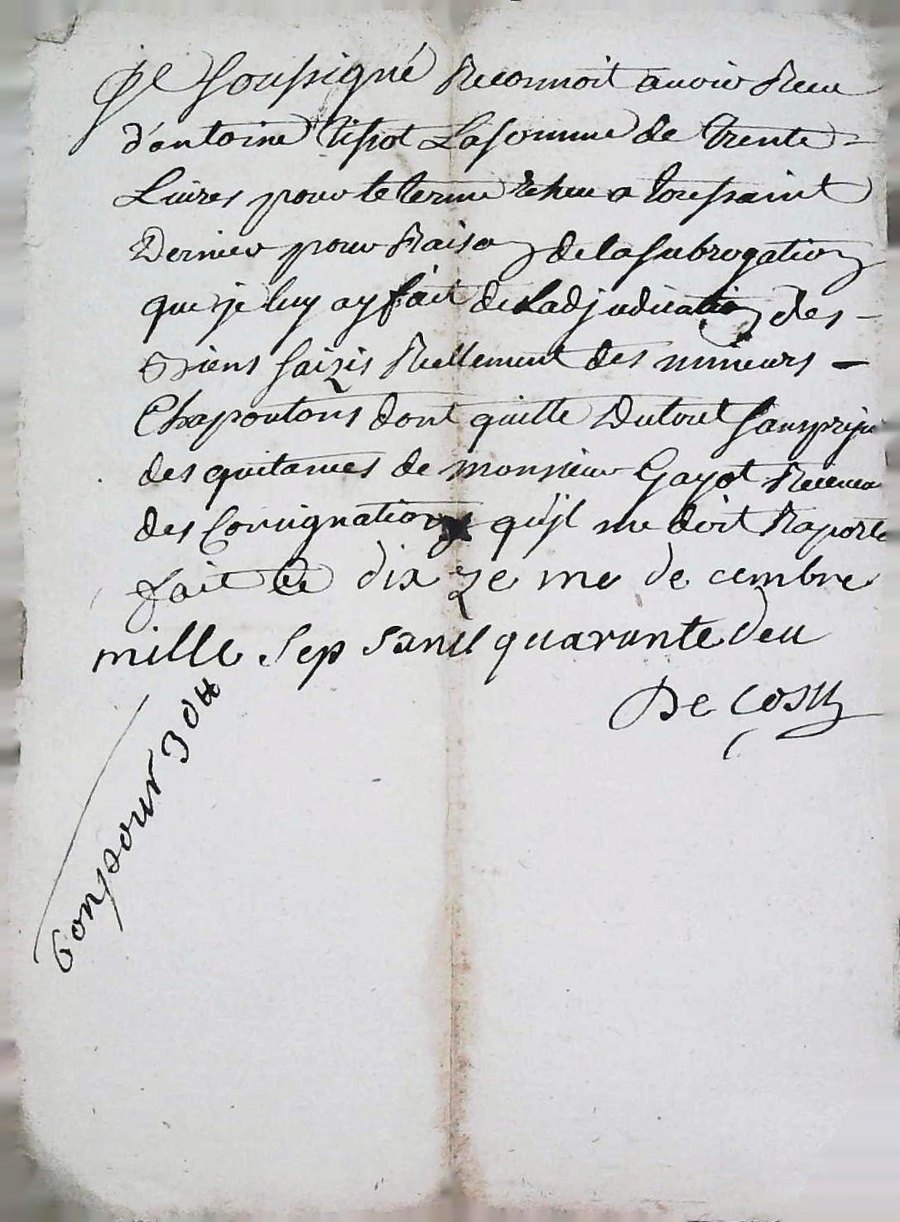 Je Soussigné Reconnoit auvoir Receu
d'antoine tissot La somme de Trente
Livres pour le terme Echeu a toussaint
Dernier pour Raison de la subrogation
que je luy ay fait de Ladjudication des
Biens saizis Reellement des mineurs
Chapoutons dont quitte Dutout sans preju
des quitances de monsieur Gayot Receveu
des Consignations qu'jl me doit Raporte
fait Ce dix ze me de cembre
mille sep sant quarante deu
De Cost
bon pour 30 tt